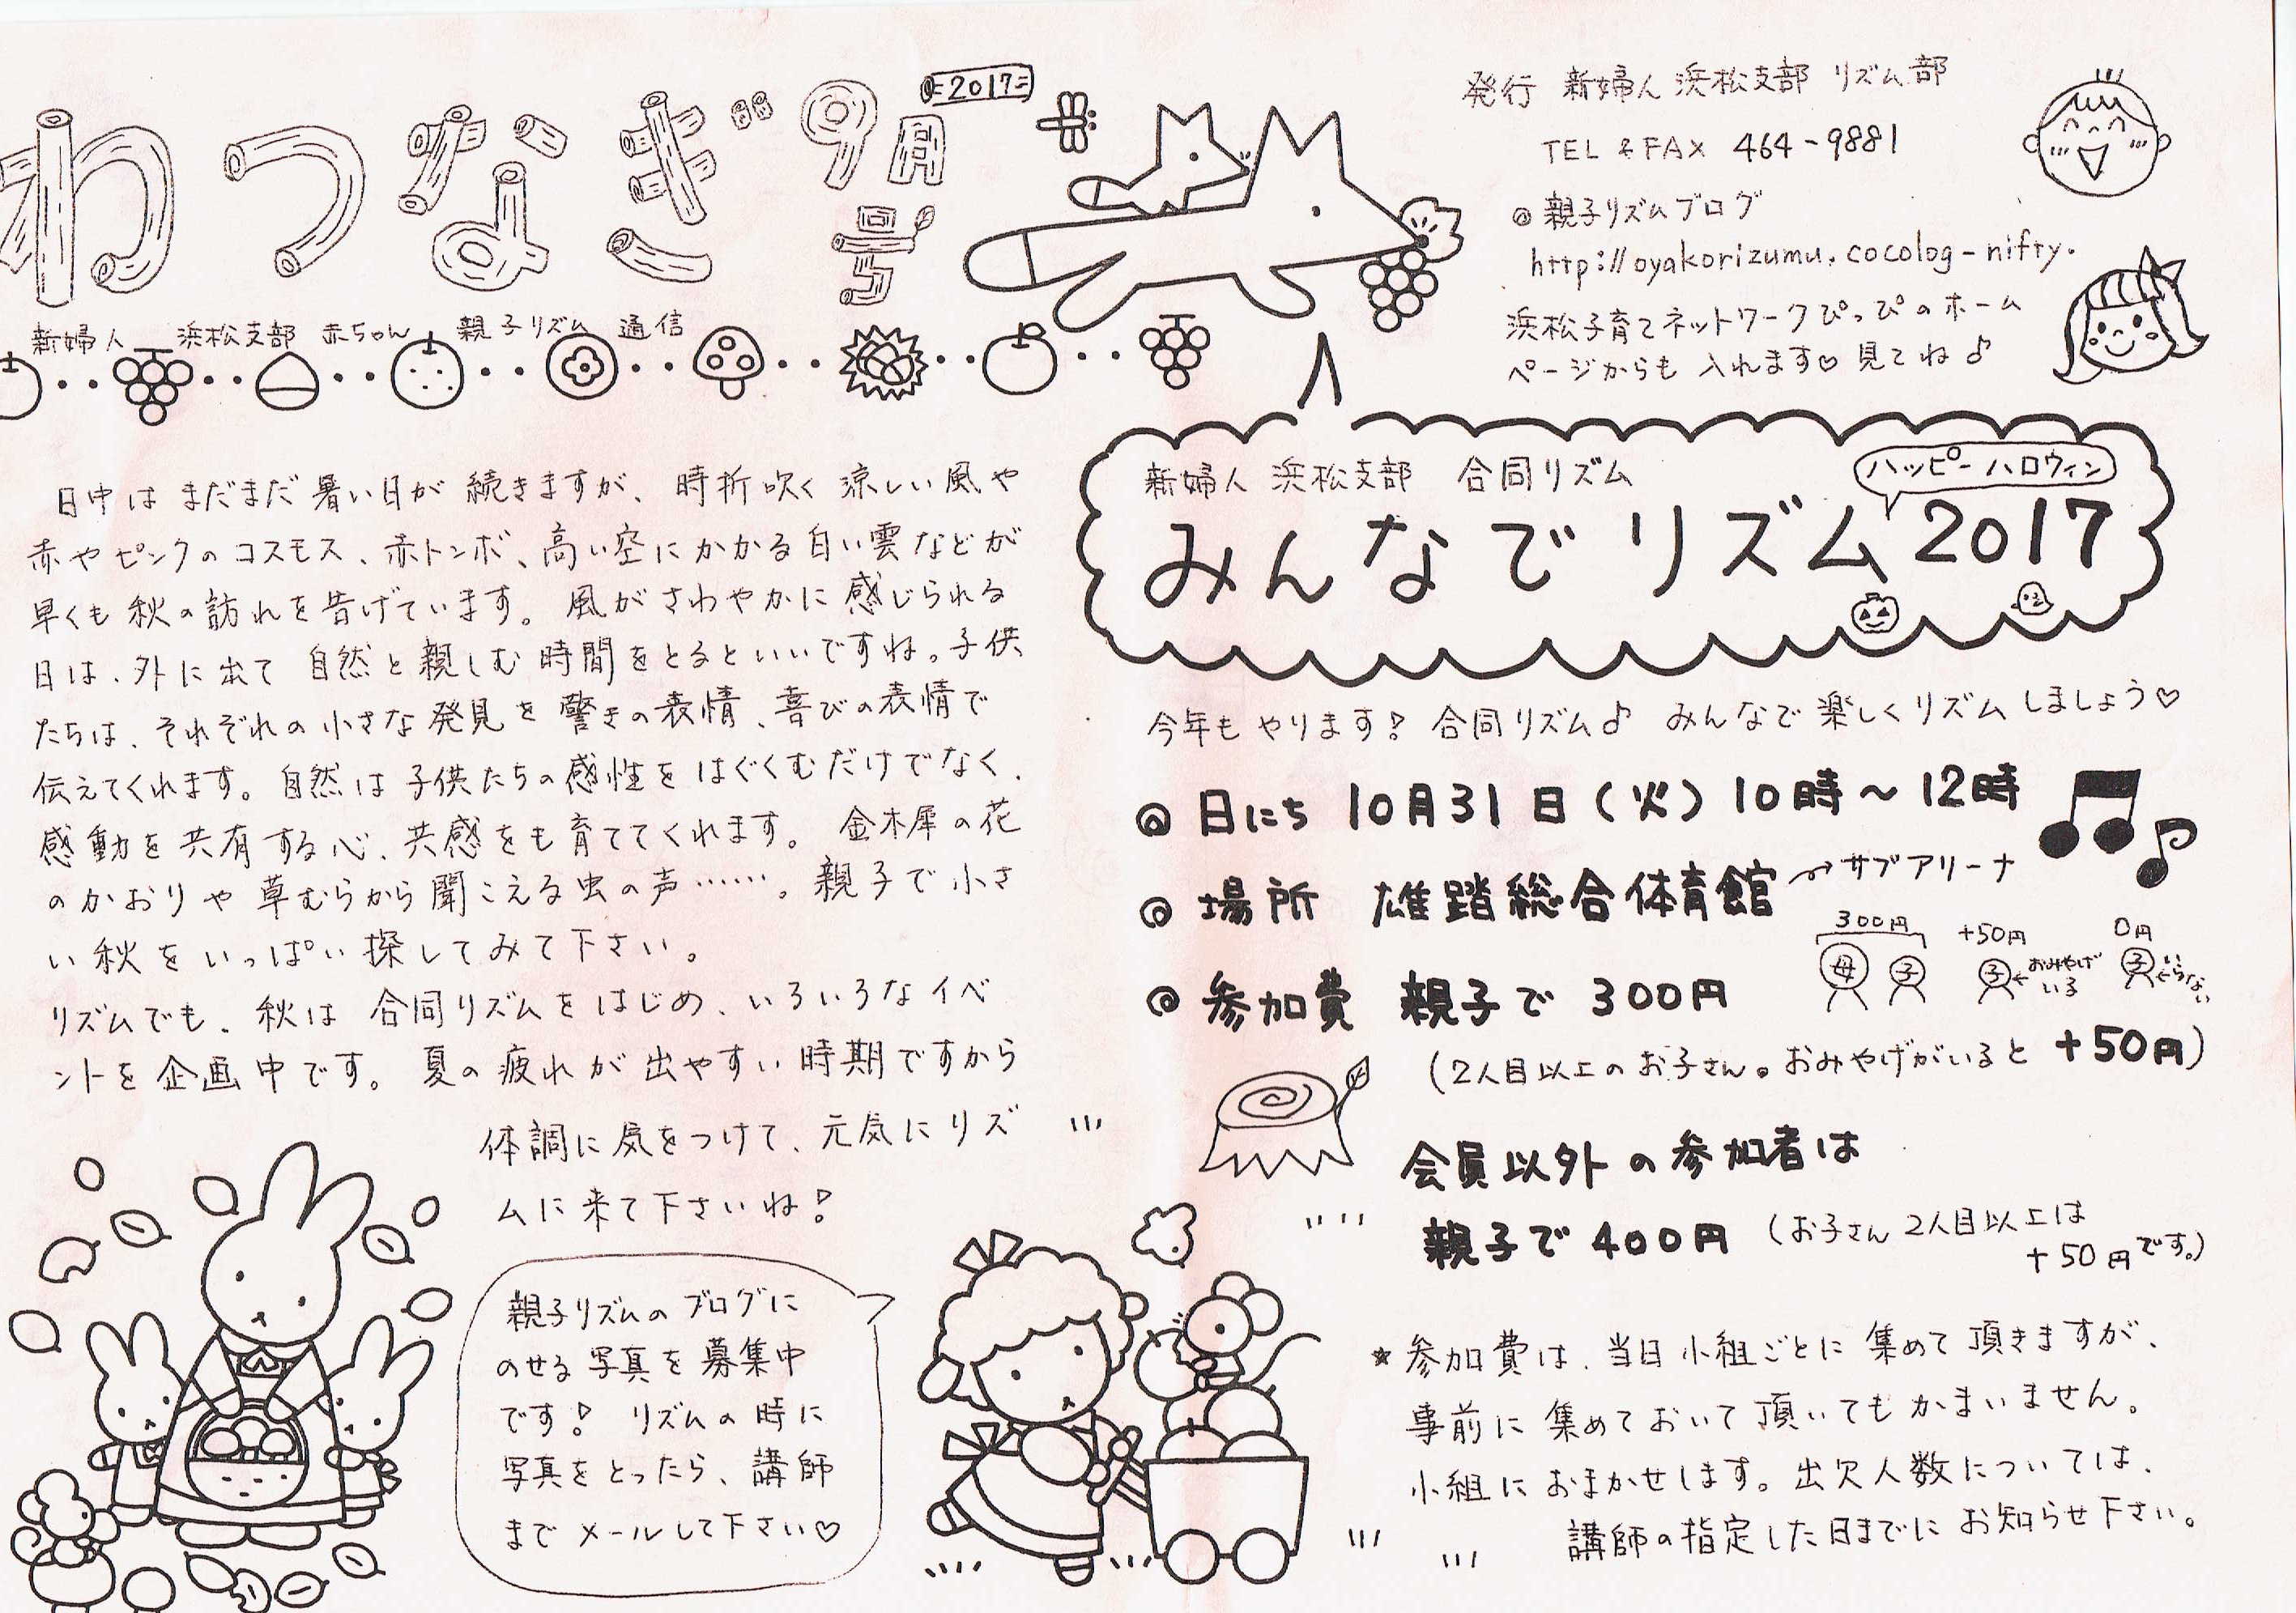 わつなぎ 9月号
=2017=
新婦人 浜松支部 赤ちゃん 親子リズム 通信
発行 新婦人 浜松支部 リズム部
TEL & FAX 464-9881
◎親子リズムブログ
http://oyakorizumu.cocolog-nifty.
浜松子育てネットワークぴっぴのホーム
ページからも 入れます♡ 見てね♪
日中は まだまだ 暑い日が 続きますが、時折吹く 涼しい風や
赤やピンクのコスモス、赤トンボ、高い空にかかる白い雲などが
早くも秋の訪れを告げています。風がさわやかに感じられる
日は、外に出て 自然と親しむ時間をとるといいですね。子供
たちは、それぞれの小さな発見を驚きの表情、喜びの表情で
伝えてくれます。自然は子供たちの感性をはぐくむだけでなく、
感動を共有する心、共感をも育ててくれます。金木犀の花
のかおりや草むらから聞こえる虫の声……。親子で小さ
い秋をいっぱい探してみて下さい。
リズムでも、秋は 合同リズムをはじめ、いろいろなイベ
ントを企画中です。夏の疲れが出やすい時期ですから
体調に気をつけて、元気にリズ
ムに来て下さいね!
親子リズムのブログに
のせる写真を募集中
です! リズムの時に
写真をとったら、講師
までメールして下さい♡
新婦人 浜松支部 合同リズム
ハッピーハロウィン
みんなでリズム2017
今年もやります! 合同リズム♪ みんなで楽しくリズムしましょう♡
◎ 日にち 10月31日(火)10時〜12時
◎ 場所 雄踏総合体育館 →サブアリーナ
◎ 参加費 親子で 300円
300円 +50円 0円
母 子 子 ←おみやげいる 子 ←いらない
(2人目以上のお子さん。おみやげがいると +50円)
会員以外の参加者は
親子で400円 (お子さん2人目以上は
+50円です。)
★参加費は、当日小組ごとに集めて頂きますが、
事前に集めておいて頂いてもかまいません。
小組におまかせします。出欠人数については、
講師の指定した日までにお知らせ下さい。